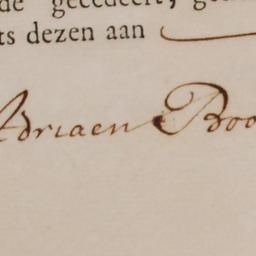 de gecedeert, ged
ts dezen aan
Adriaen Boo